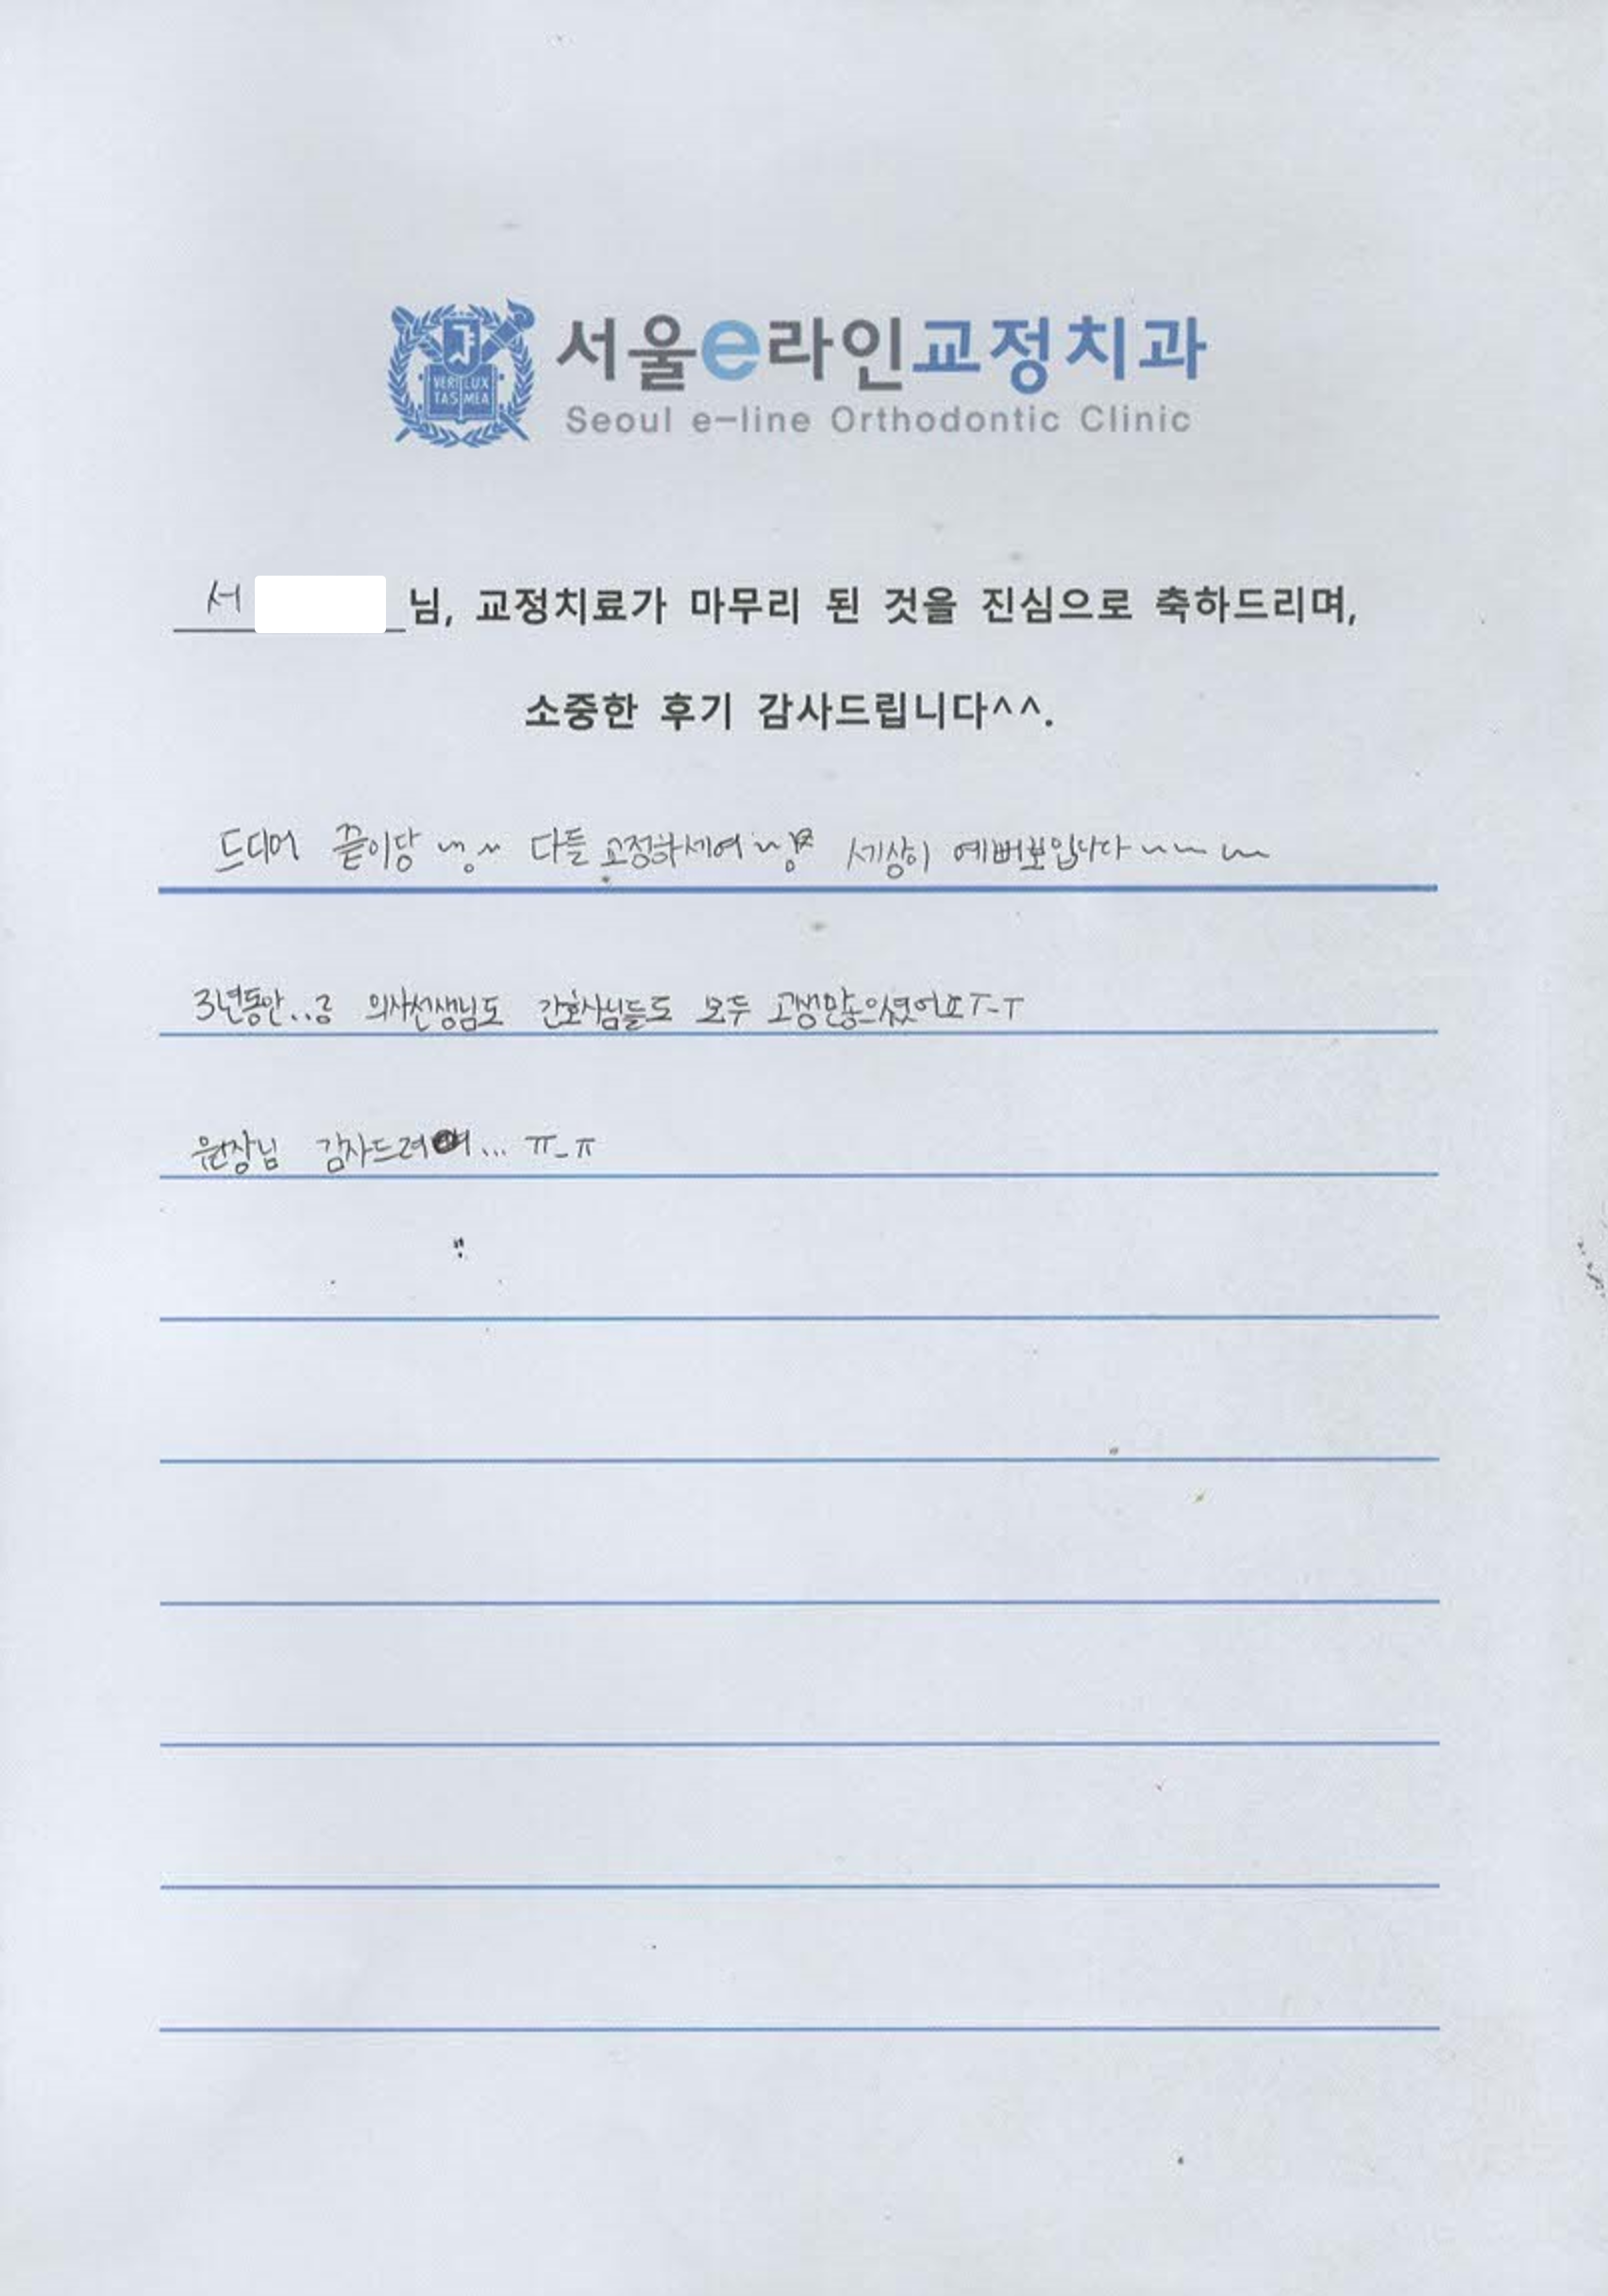 VERI LUX
TAS MEA
서울e라인교정치과
Seoul e-line Orthodontic Clinic
서 님, 교정치료가 마무리 된 것을 진심으로 축하드리며,
소중한 후기 감사드립니다^^.
드디어 끝이당 ~~ 다들 교정하세여~ 세상이 예뻐보입니다~~~
3년동안.. 의사선생님도 간호사님들도 모두 고생많으셨어요ㅜ-ㅜ
원장님 감사드려여... ㅠ_ㅠ